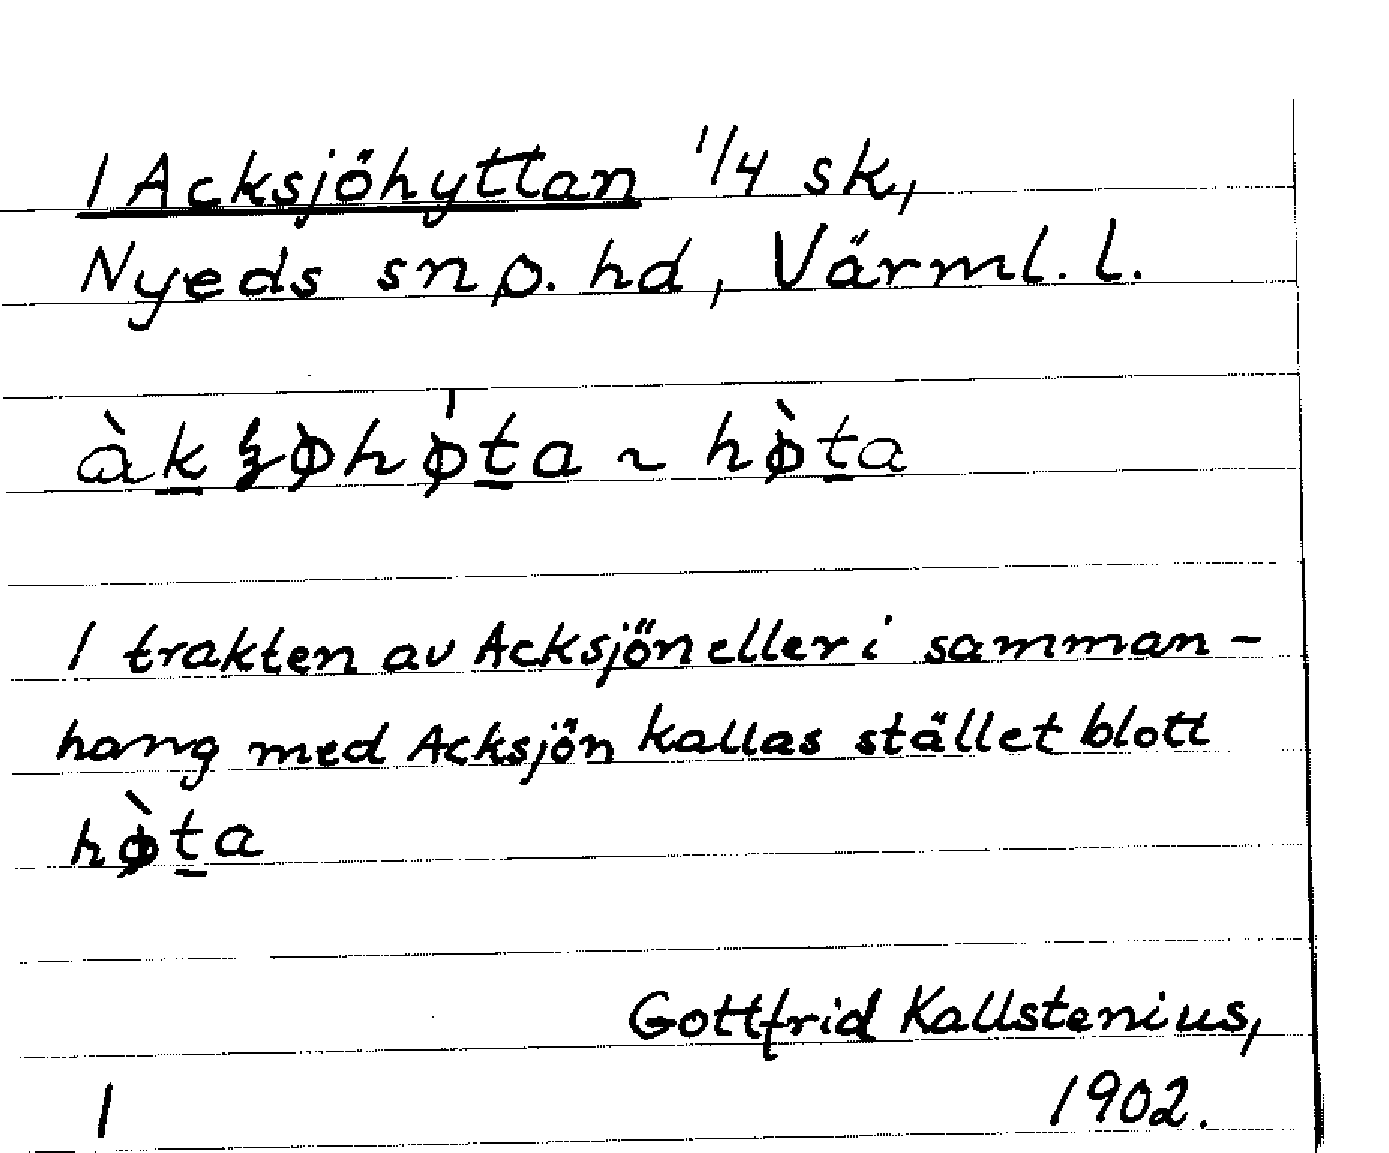 1 Acksjöhyttan 1/4 sk,
Nyeds sn o. hd, Värml. l.
àkʒøhø̍ta ~ hø̀ta
I trakten av Acksjön eller i samman-
hang med Acksjön kallas stället blott
hø̀ta
Gottfrid Kallstenius,
1 1902.